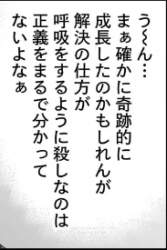 う〜ん…
まぁ確かに奇跡的に
成長したのかもしれんが
解決の仕方が
呼吸をするように殺しなのは
正義をまるで分かって
ないよなぁ